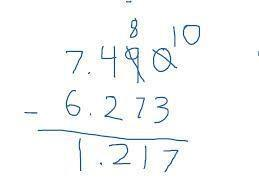 8 10
7.490
- 6.273
1.217